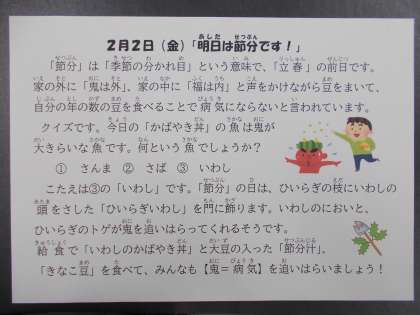 2月2日（金）「明日は節分です！」
「節分」は「季節の分かれ目」という意味で、「立春」の前日です。
家の外に「鬼は外」、家の中に「福は内」と声をかけながら豆をまいて、
自分の年の数の豆を食べることで病気にならないと言われています。
クイズです。今日の「かばやき丼」の魚は鬼が
大きらいな魚です。何という魚でしょうか？
① さんま ② さば ③ いわし
こたえは③の「いわし」です。「節分」の日は、ひいらぎの枝にいわしの
頭をさした「ひいらぎいわし」を門に飾ります。いわしのにおいと、
ひいらぎのトゲが鬼を追いはらってくれるそうです。
給食で「いわしのかばやき丼」と大豆の入った「節分汁」、
「きなこ豆」を食べて、みんなも【鬼＝病気】を追いはらいましょう！